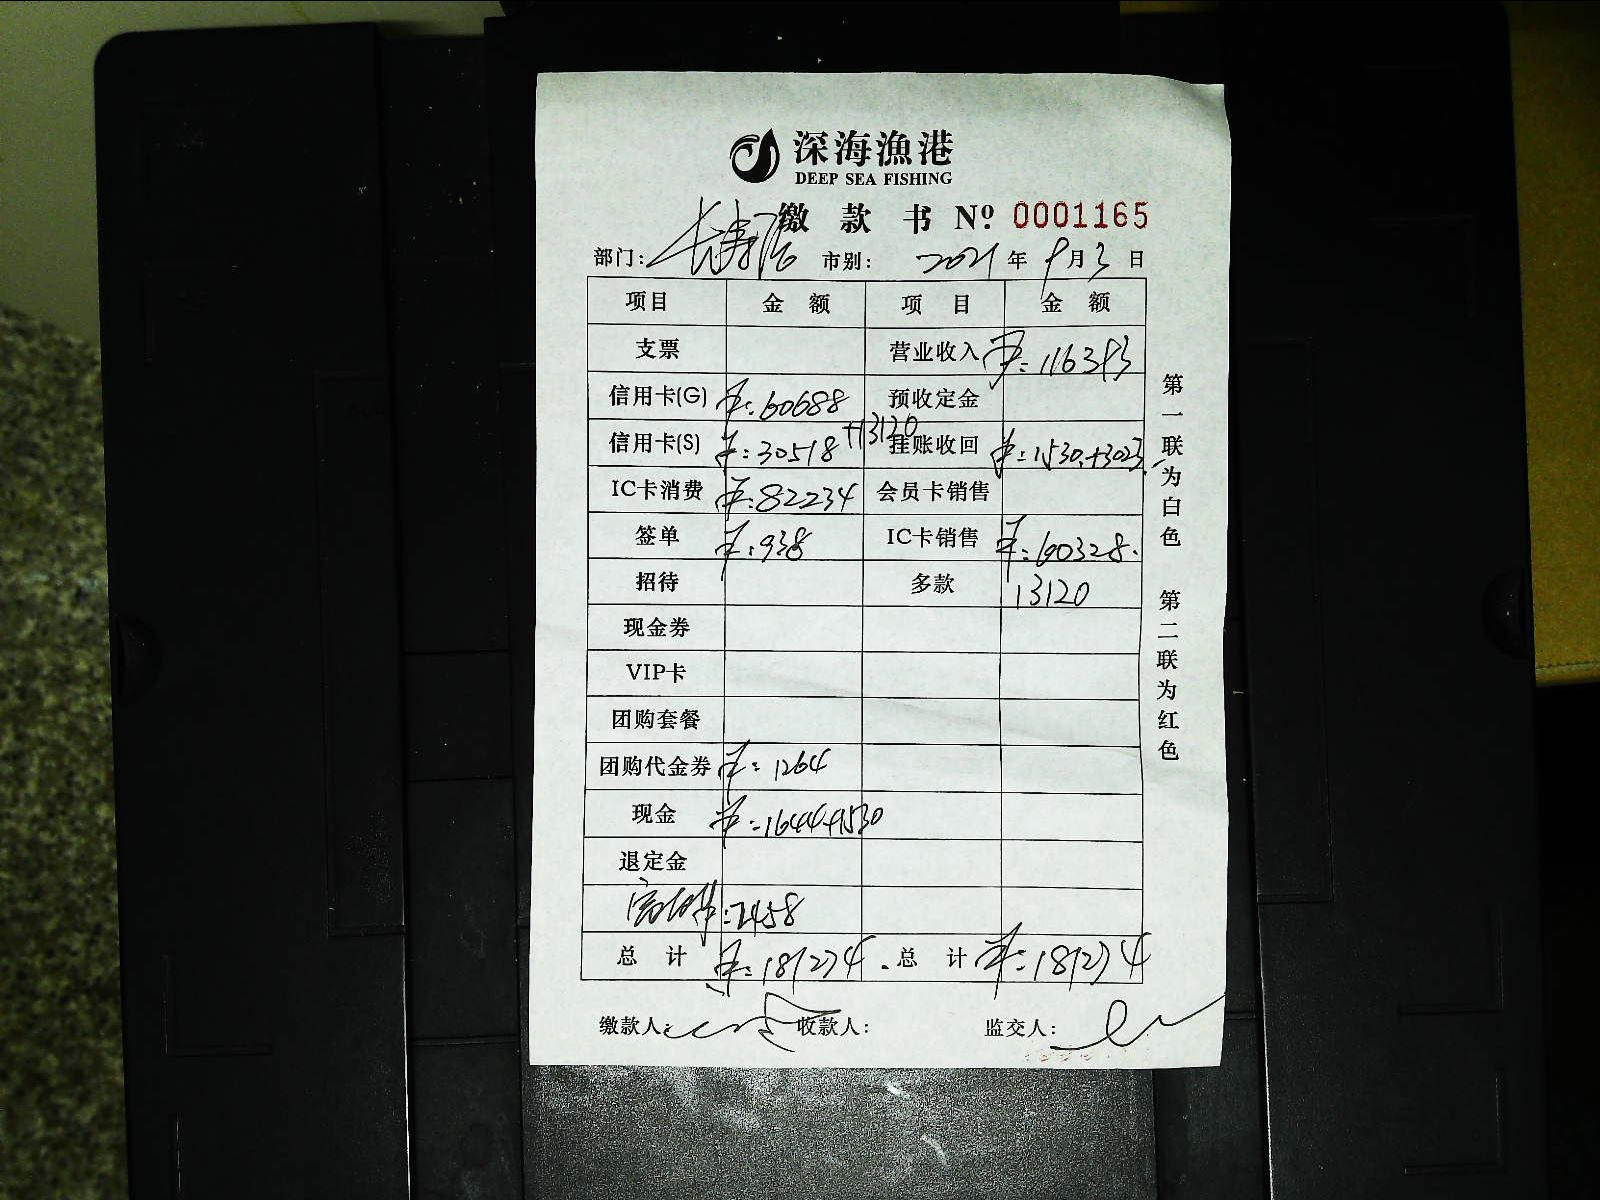 深海漁港
DEEP SEA FISHING
缴款书 Nº: 0001165
部门: 长寿店 市别: 2021年9月3日
项目 金额 项目 金额
支票 营业收入 ¥:116393
信用卡(G) ¥:60688 预收定金
信用卡(S) ¥:30518+13120 挂账收回 ¥:1530+3023
IC卡消费 ¥:82234 会员卡销售
签单 ¥:938 IC卡销售 ¥:60328.
招待 多款 13120
现金券
VIP卡
团购套餐
团购代金券 ¥:1264
现金 ¥:1644+1530
退定金
¥:2458
总计 ¥:181274. 总计 ¥:181274
缴款人: 收款人: 监交人:
第一联为白色 第二联为红色